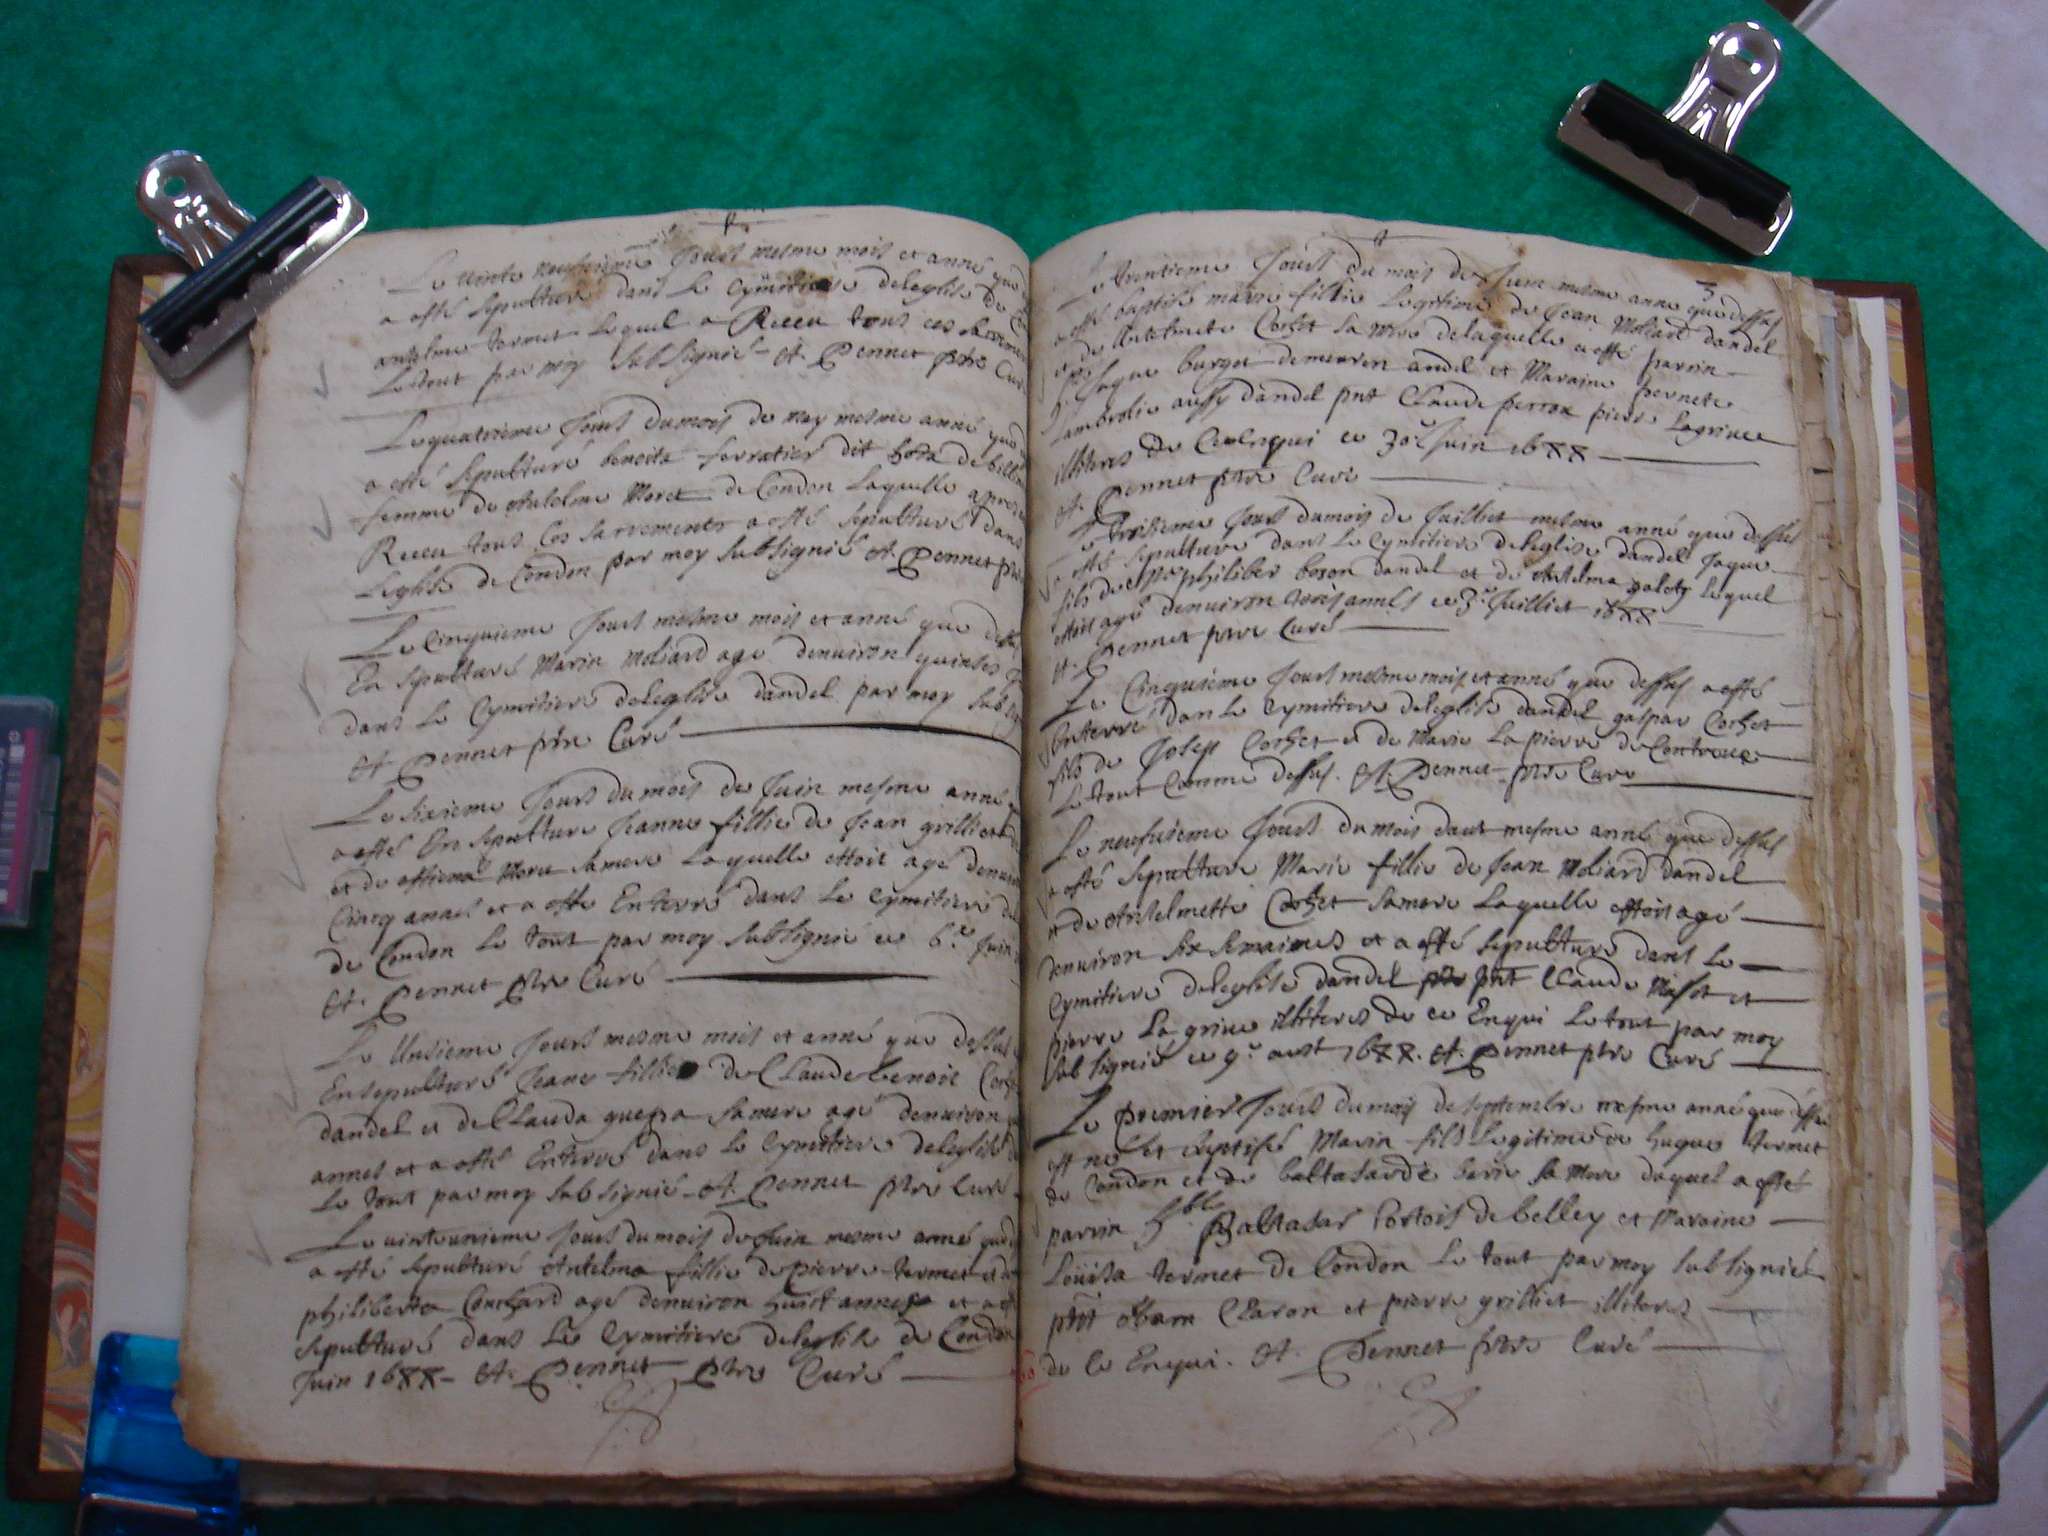 Le vinte neufvieme Jours mesme mois et anné que
a esté sepulturé dans le cymitiere deleglise de
antelme termet lequel a Receu tous ces sacremen
Le tout par moy subsignié - A. Pennet ptre Cur
Le quatorieme Jours dumois de may mesme anné que
a esté sepulturé benoita ferratier dit
femme de Antelme Moret de Condon laquelle
Receu tous ces sacrements a esté sepulturé dans
Leglise de Condon par moy subsignié A. Pennet ptre
Le Cinquieme Jours mesme mois et anné que dess
En sepulturé Marin Moliard agé denviron quinses
dans le Cymitiere deleglise dandel par moy sub
A. Pennet ptre Curé
Le sixieme Jours du mois de Juin mesme anné
a esté En sepulturé Jeanne fillie de Jean grilliet
et de Moret samere Laquelle ettoit agé denviron
Cincq annes et a esté Enterré dans le Cymitiere de
de Condon le tout par moy subsignié ce 6.e Juin
A. Pennet ptre Curé
Le Unsieme Jours mesme mois et anné que dessus
Ensepulturé Jeane fillie de Claude benoit
dandel et de Clauda samere agé denviron
annes et a esté Enterré dans le Cymitiere deleglise
Le tout par moy subsignié A. Pennet ptre Curé
Le vinteunieme Jours du mois de Juin mesme anné que
a esté sepulturé Antelma fillie de pierre termet et de
philiberta Couchard agé denviron huict annes et a esté
sepulturé dans Le Cymitiere deleglise de Condon
Juin 1677 - A. Pennet ptre Curé
3
Le trentieme Jours du mois de Juin mesme anne que dessus
a esté baptisé marie fillie Legitime de Jean Moliard dandel
et de Antelmete Cochet sa mere delaquelle a esté parrin
Jaque burget demeuren andel et Maraine pernete
aussy dandel pnt Claude perron pierre Lagrive
illiteres de Ce enqui ce 30e Juin 1677
A. Pennet ptre Curé
Le troisieme Jours dumois de Juilliet mesme anné que dessus
a esté sepulturé dans le Cymitiere deleglise dandel Jaque
fils de philiber boson dandel et de Antelma lequel
ettoit agé denviron trois annes ce 3.e Juilliet 1677
A. Pennet ptre Curé
Le Cinquieme Jours mesme mois et anné que dessus a esté
Enterré dan le Cymitiere deleglise dandel gaspar Cochet
fils de Josep Cochet et de Marie La pierre de
Le tout Comme dessus. A. Pennet ptre Curé
Le neufvieme Jours du mois daut mesme anné que dessus
a esté sepulturé Marie fillie de Jean Moliard dandel
et de Antelmette Cochet samere Laquelle ettoit agé
denviron six semaines et a esté sepulturé dans le
Cymitiere deleglise dandel pnt Claude et
pierre La grive illiteres de ce Enqui Le tout par moy
subsignié ce 9.e aust 1677. A. Pennet ptre Curé
Le Premier Jours du mois de septembre mesme anné que dessus
est né et baptisé Marin fils legitime de huque termet
de Condon et de baltasarde sa Mere duquel a esté
parrin hble Baltasar Portois de belley et Maraine
Loüisa termet de Condon Le tout par moy subsignié
pnt Claron et pierre grilliet illiteres
de Ce Enqui. A. Pennet ptre Curé